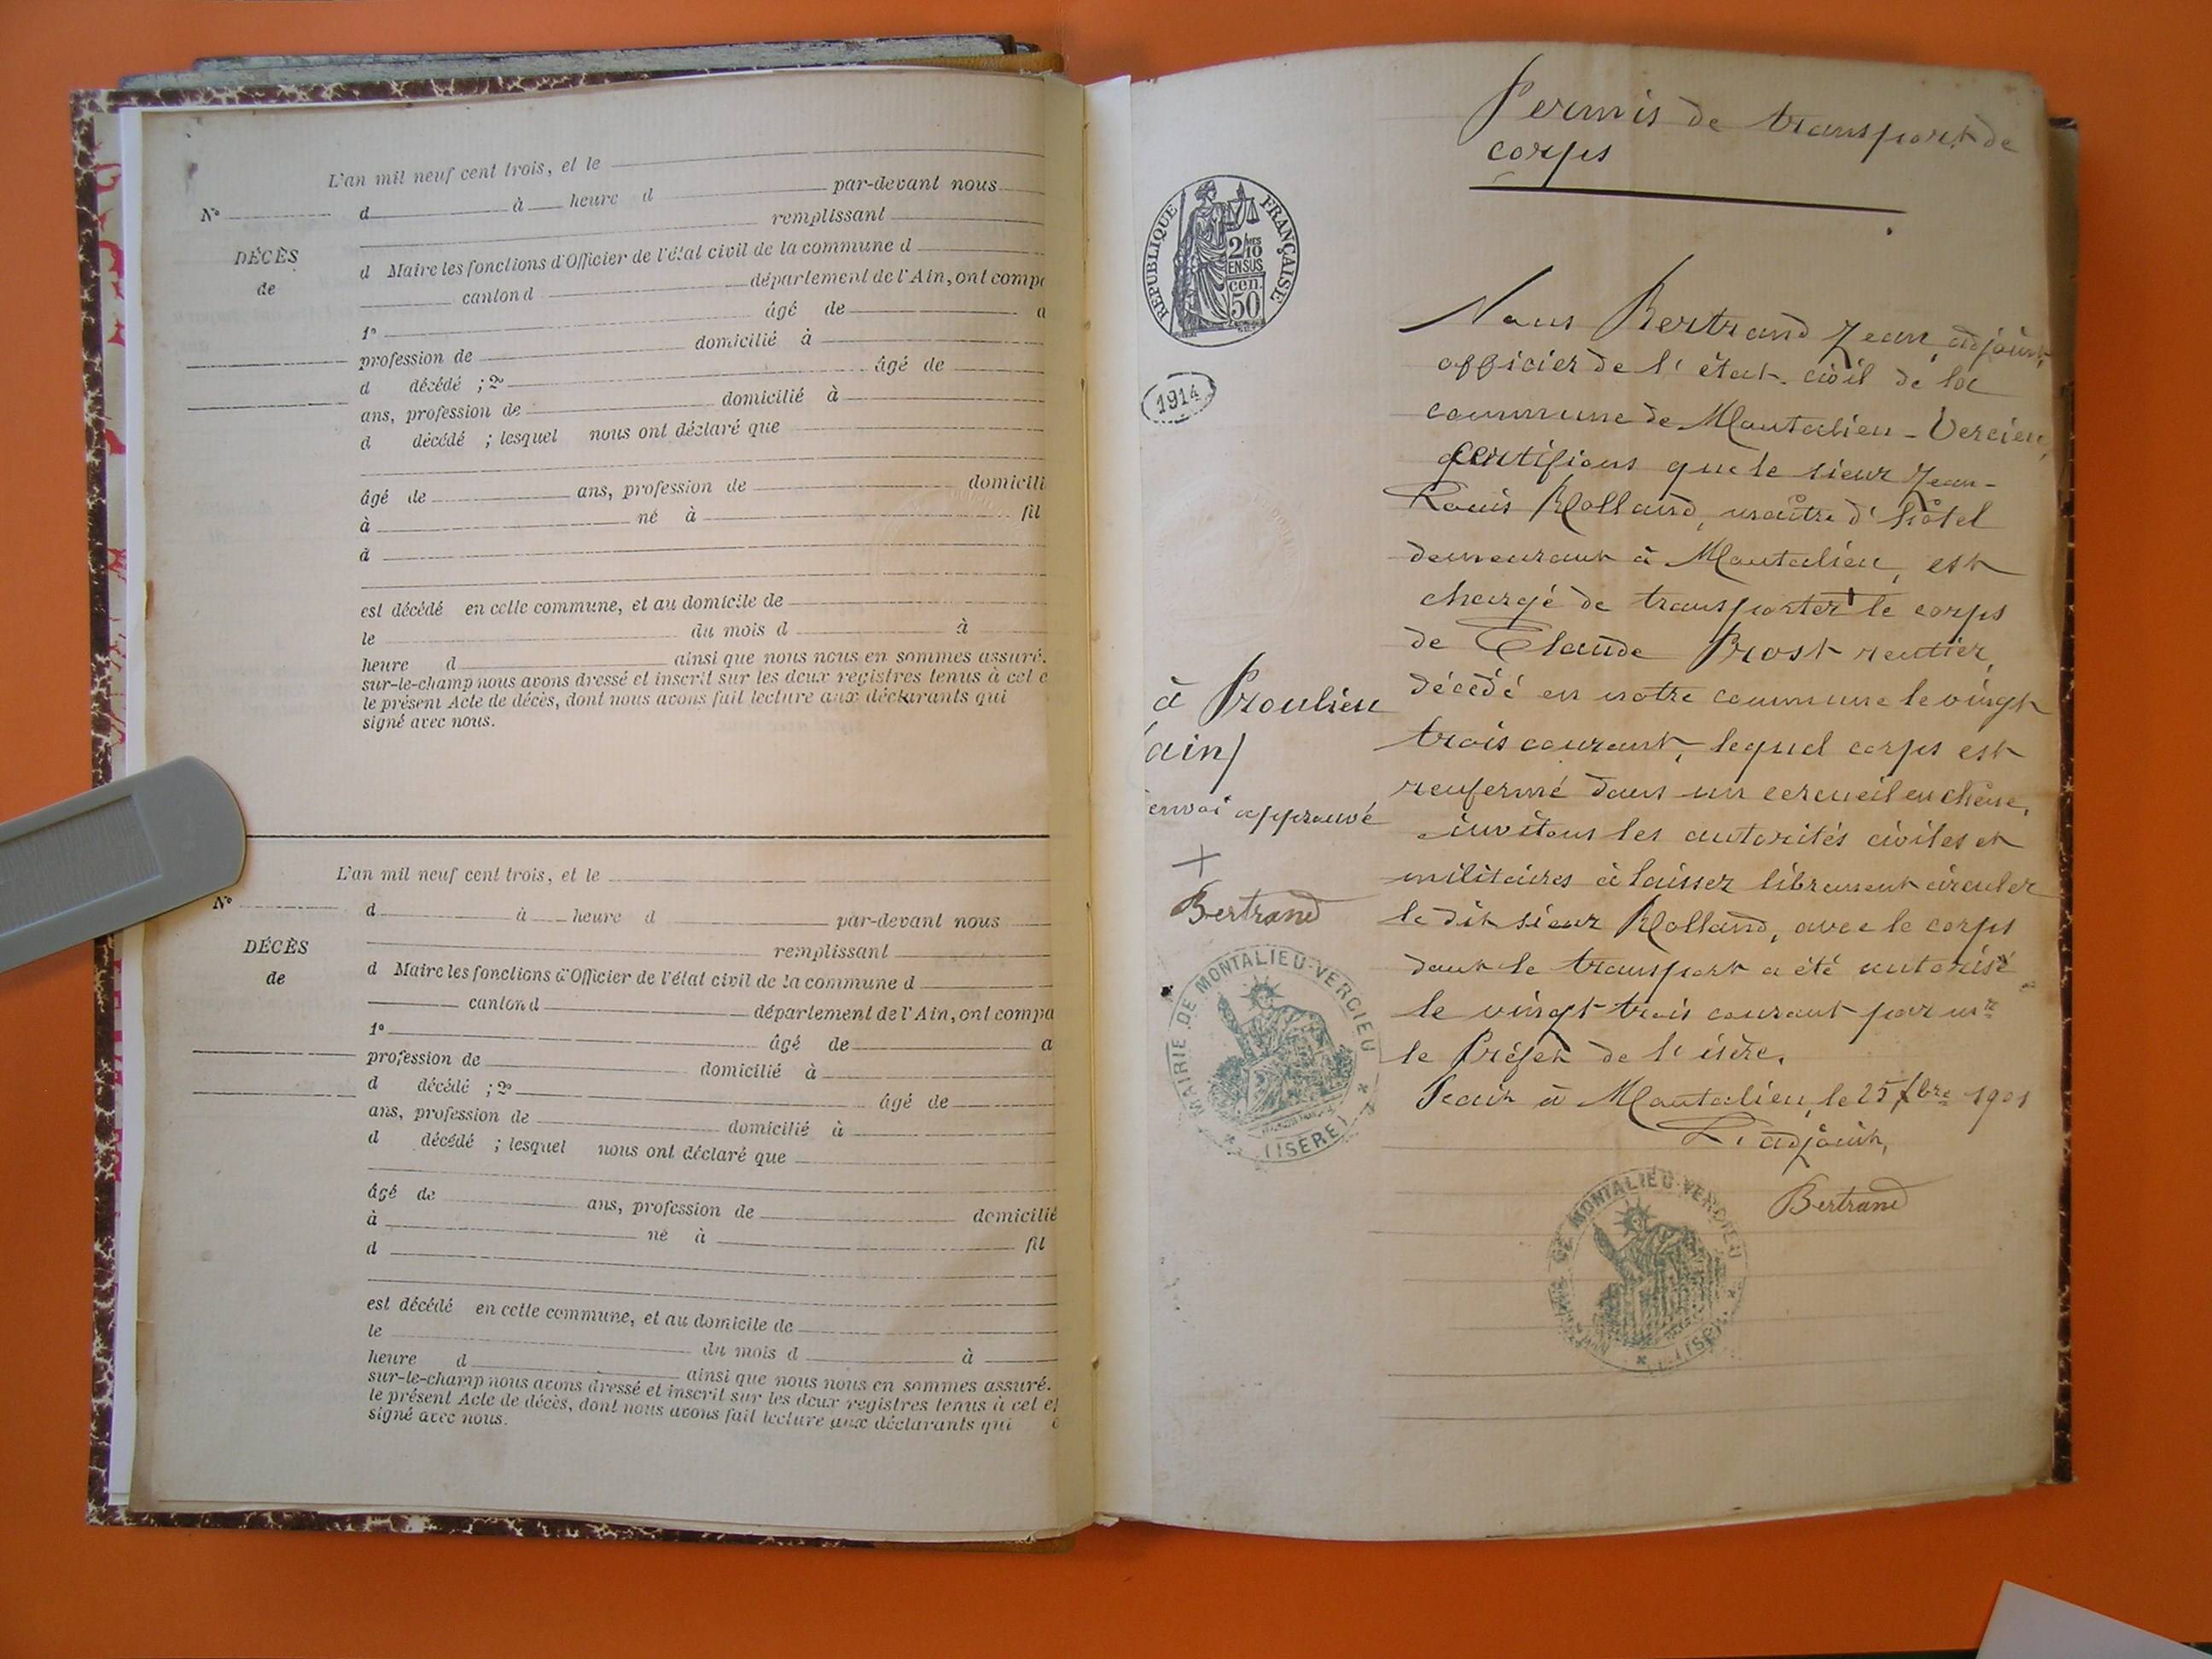 L'an mil neuf cent trois, et le
N° d à heure d par-devant nous
remplissant
DÉCÈS
de
d Maire les fonctions d'Officier de l'état civil de la commune d
canton d département de l'Ain, ont compa
1° âgé de a
profession de domicilié à
d décédé ; 2° âgé de
ans, profession de domicilié à
d décédé ; lesquel nous ont déclaré que
âgé de ans, profession de domicili
à né à fil
d
est décédé en cette commune, et au domicile de
le du mois d à
heure d ainsi que nous nous en sommes assuré.
sur-le-champ nous avons dressé et inscrit sur les deux registres tenus à cet e
le présent Acte de décès, dont nous avons fait lecture aux déclarants qui
signé avec nous.
L'an mil neuf cent trois, et le
N° d à heure d par-devant nous
remplissant
DÉCÈS
de
d Maire les fonctions d'Officier de l'état civil de la commune d
canton d département de l'Ain, ont compa
1° âgé de a
profession de domicilié à
d décédé ; 2° âgé de
ans, profession de domicilié à
d décédé ; lesquel nous ont déclaré que
âgé de ans, profession de domicilié
à né à fil
d
est décédé en cette commune, et au domicile de
le du mois d à
heure d ainsi que nous nous en sommes assuré.
sur-le-champ nous avons dressé et inscrit sur les deux registres tenus à cet ef
le présent Acte de décès, dont nous avons fait lecture aux déclarants qui
signé avec nous.
Permis de transport de
corps
REPUBLIQUE FRANÇAISE
2/10 MES
EN SUS
50 cen.
1914
Nous Bertrand Jean, adjoint,
officier de l'état civil de la
commune de Montalieu-Vercieu,
certifions que le sieur Jean-
Louis Rolland, maître d'hôtel
demeurant à Montalieu, est
chargé de transporter le corps
de Claude Prost rentier,
décédé en notre commune le vingt
trois courant, lequel corps est
renfermé dans un cercueil en chêne,
invitons les autorités civiles et
militaires à laisser librement circuler
le dit sieur Rolland, avec le corps
dont le transport a été autorisé
le vingt trois courant par mr
le Préfet de l'isère.
Fait à Montalieu, le 25 7bre 1901
L'adjoint,
Bertrand
à Proulieu
(ain)
envoi approuvé
+
Bertrand
MAIRIE DE MONTALIEU-VERCIEU
(ISERE)
MAIRIE DE MONTALIEU-VERCIEU
(ISERE)